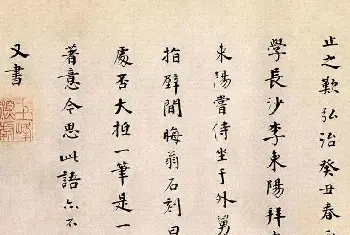 止之歎弘治癸丑春
學長沙李東陽拜
東陽嘗侍坐于外舅
指壁間晦翁石刻曰
處否大抵一筆是一
著意令思此語六不
又書